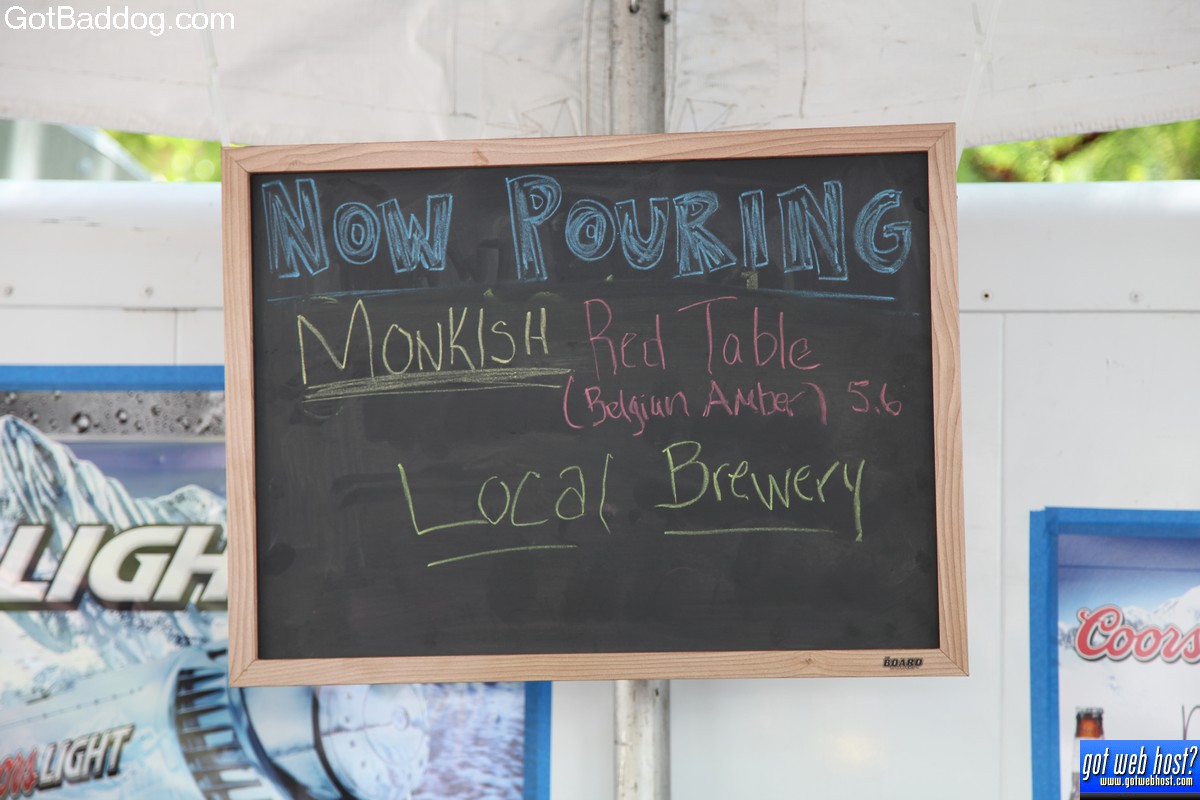 GotBaddog.com
NOW POURING
MONKISH Red Table
(Belgian Amber) 5.6
Local Brewery
LIGH
LIGHT
Coors
BOARD
got web host?
www.gotwebhost.com